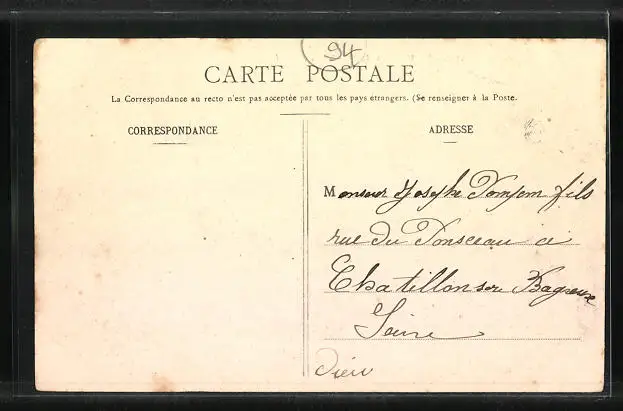 94
CARTE POSTALE
La Correspondance au recto n'est pas acceptée par tous les pays etrangers. (Se renseigner à la Poste.
CORRESPONDANCE
ADRESSE
Monsieur Joseph fils
rue du Ponceau à
Chatillon sur Bagneux
Seine